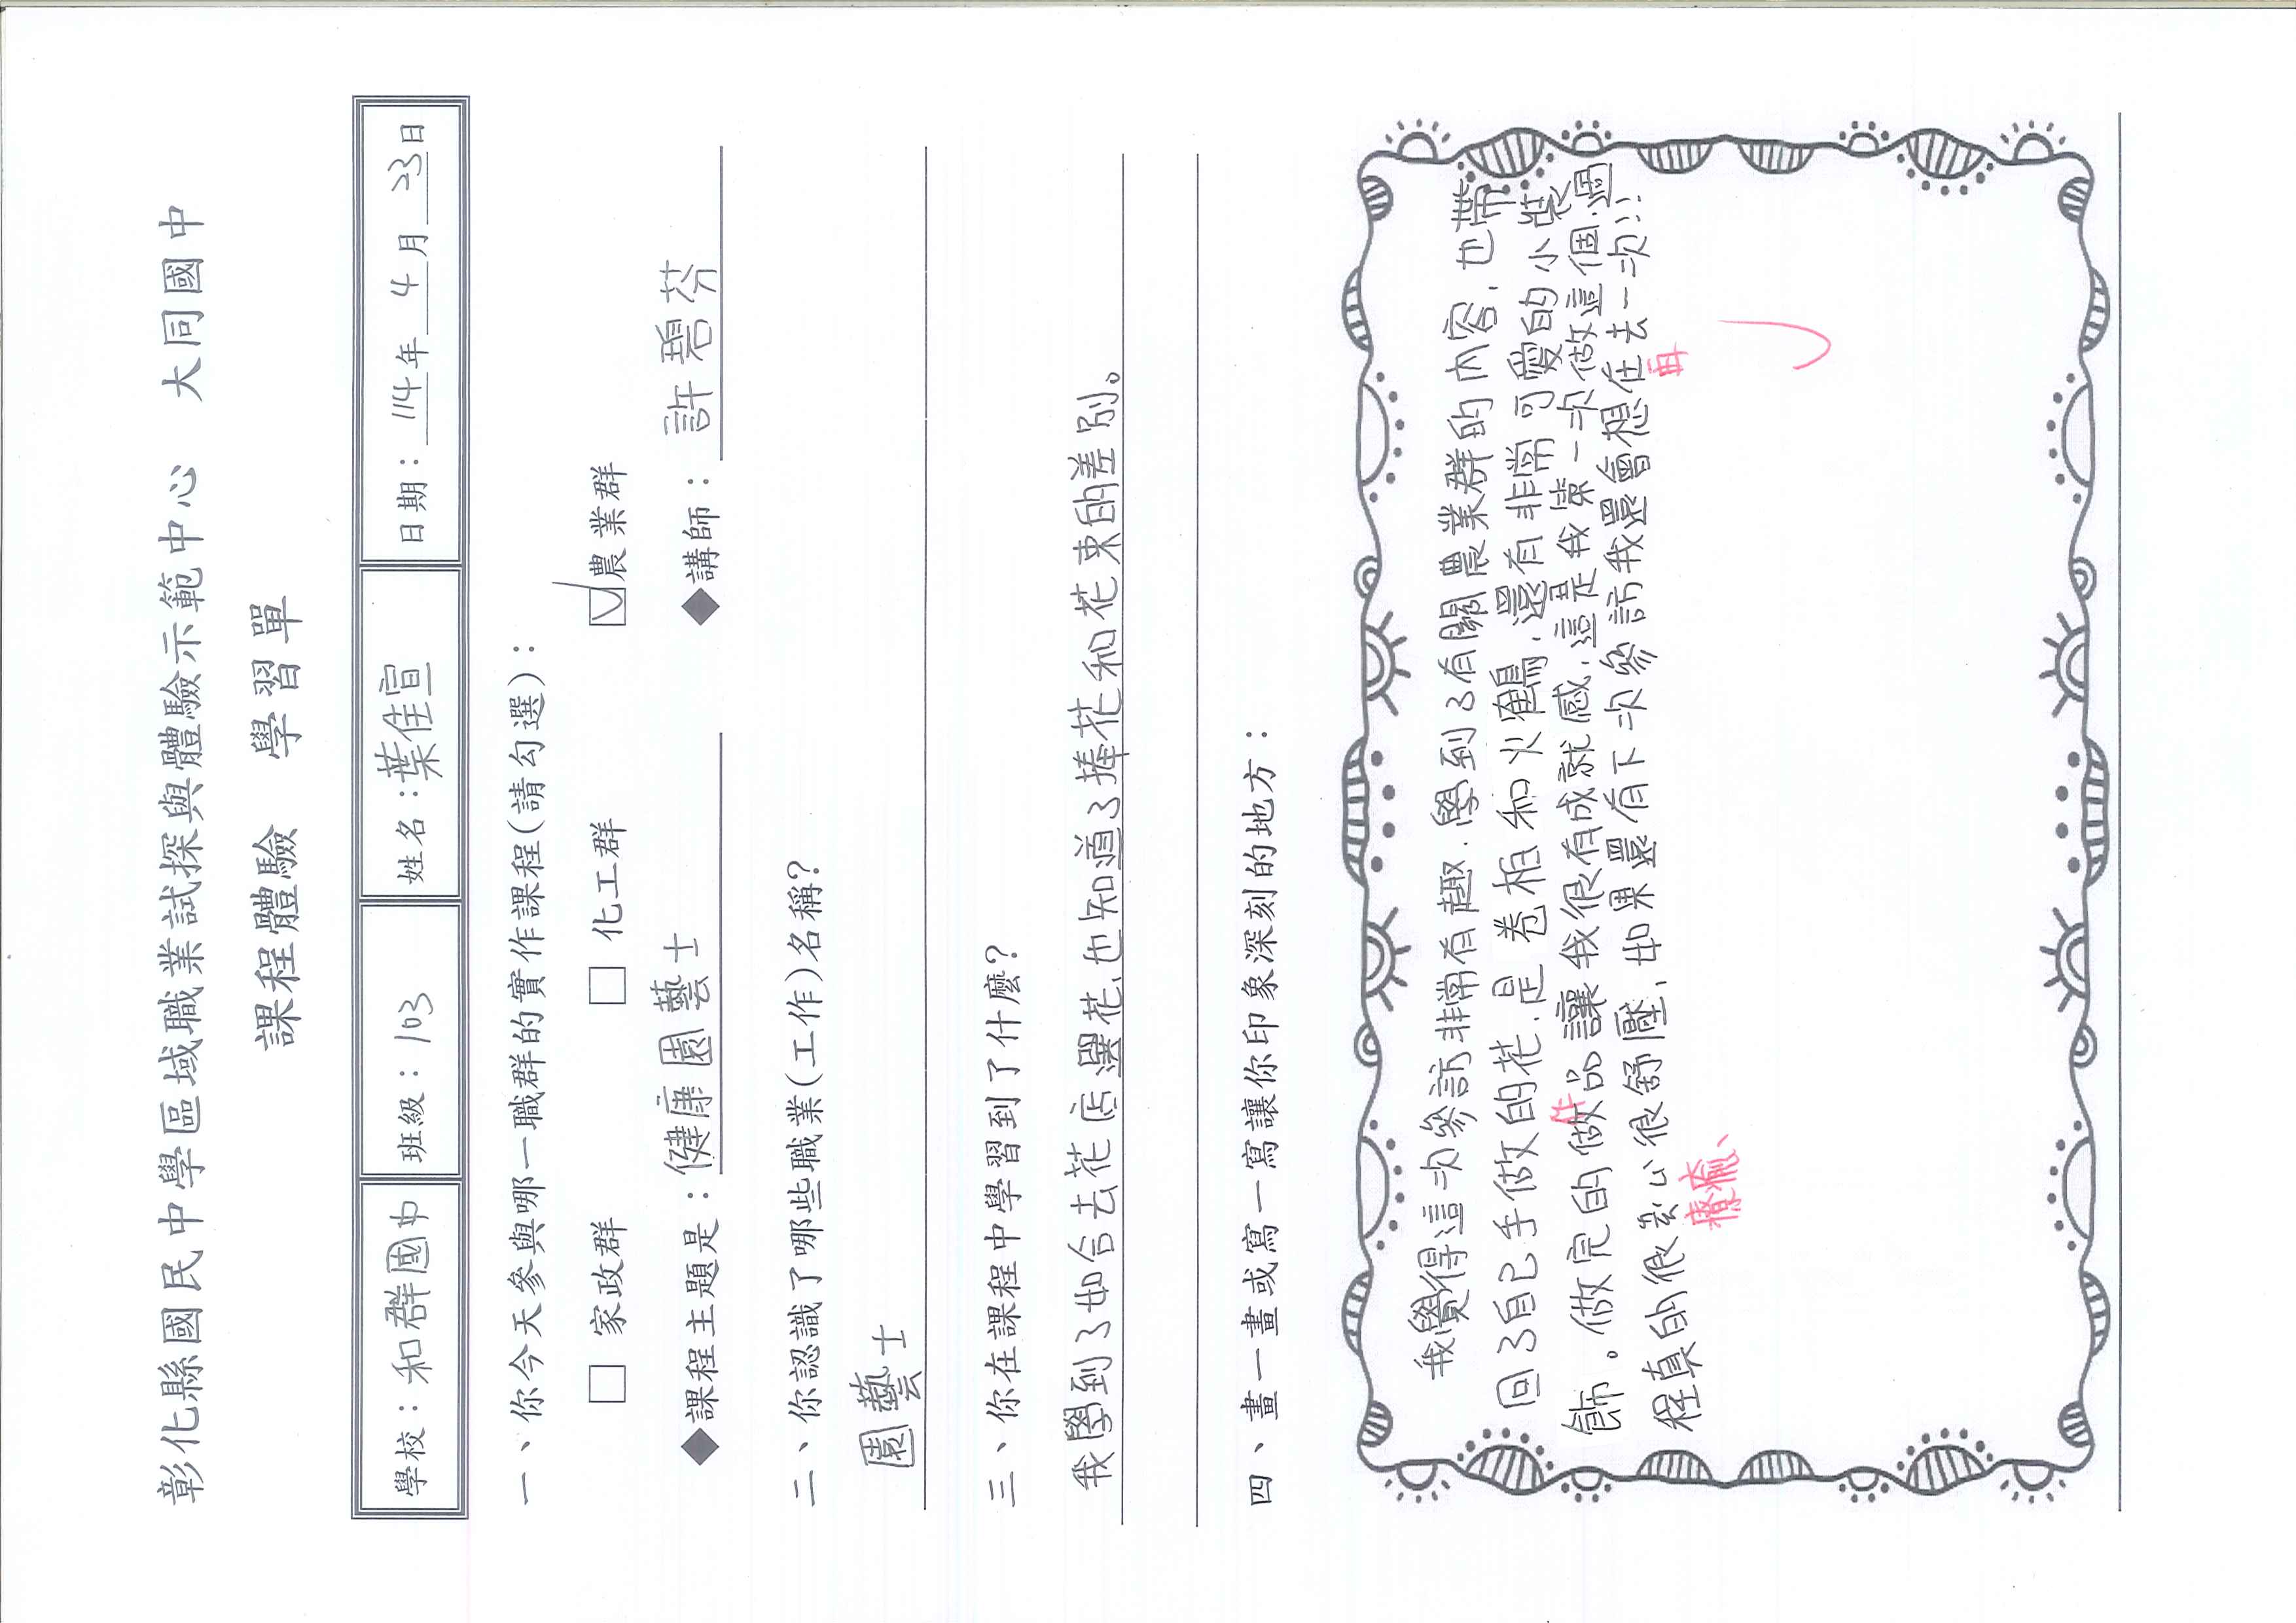 彰化縣國民中學區域職業試探與體驗示範中心　大同國中
課程體驗　學習單
學校：和群國中　班級：103　姓名：葉佳宣　日期：114年4月23日
一、你今天參與哪一職群的實作課程(請勾選)：
□ 家政群　□ 化工群　☑農業群
◆課程主題是：健康園藝士　◆講師：許碧芬
二、你認識了哪些職業(工作)名稱?
園藝士
三、你在課程中學習到了什麼?
我學到了如合去花店選花,也知道了捧花和花束的差別。
四、畫一畫或寫一寫讓你印象深刻的地方：
我覺得這次參訪非常有趣,學到了有關農業群的內容,也帶
回了自己手做的花,是卷柏和火鶴,還有非常可愛的小裝
飾。做完的做品讓我很有成就感,這是我第一次做這個,過
作
程真的很 心很舒壓,如果還有下次參訪我還會想在去一次!!
療癒、
再